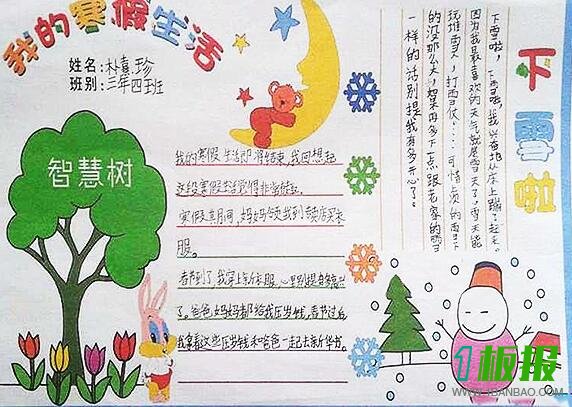 我的寒假生活
姓名:朴真珍
班别:三年四班
智慧树
我的寒假生活即将结束,我回想起
这段寒假生活觉得非常有趣。
寒假期间,妈妈带领我到专卖店买衣
服。
春节到了,我穿上新衣服,心里别提多高兴
了。爸爸妈妈都给我压岁钱,春节过后
我拿着这些压岁钱和爸爸一起去新华书
下雪啦
下雪啦,下雪啦,我兴奋地从床上蹦了起来。
因为我最喜欢的天气就是雪天了,雪天能
玩堆雪人,打雪仗……可惜上顶的雪下
的没那么大,如果再多下一点跟老家的雪
一样的话别提我有多开心了。
1板报
WWW.1BANBAO.COM